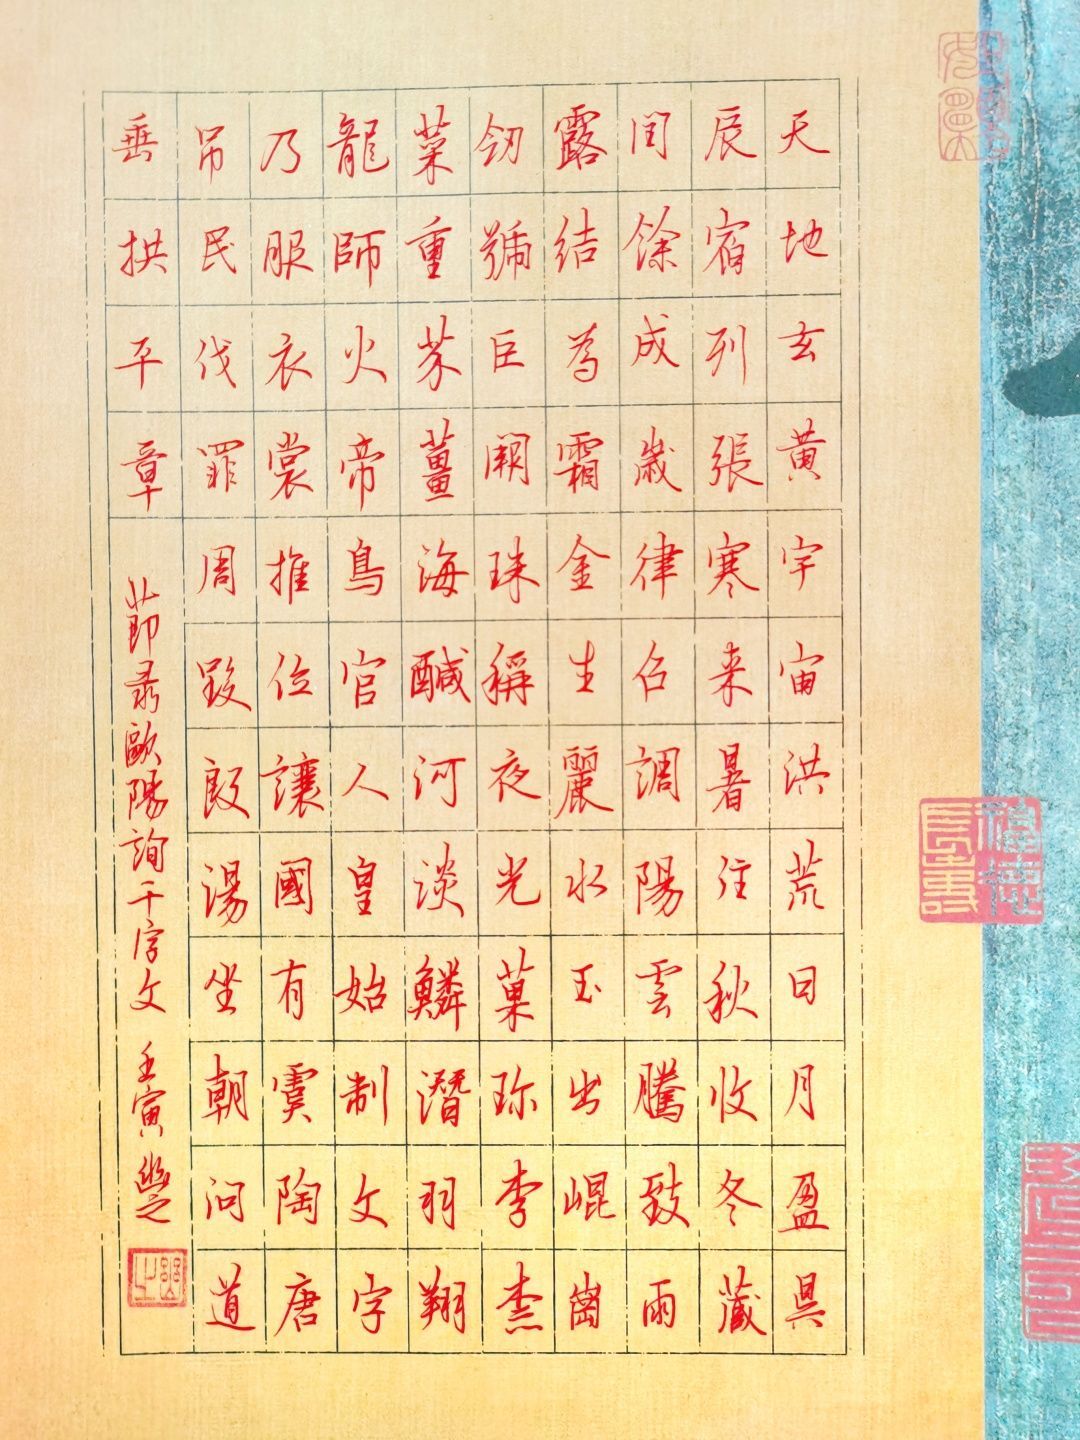 天地玄黄宇宙洪荒日月盈昃
辰宿列張寒来暑往秋收冬藏
閏餘成歲律召調陽雲騰致雨
露結為霜金生麗水玉出崐崗
劒號巨闕珠稱夜光菓珍李柰
菜重芥薑海醎河淡鱗潛羽翔
龍師火帝鳥官人皇始制文字
乃服衣裳推位讓國有虞陶唐
吊民伐罪周發殷湯坐朝問道
垂拱平章
節录歐陽詢千字文 壬寅
福德長壽